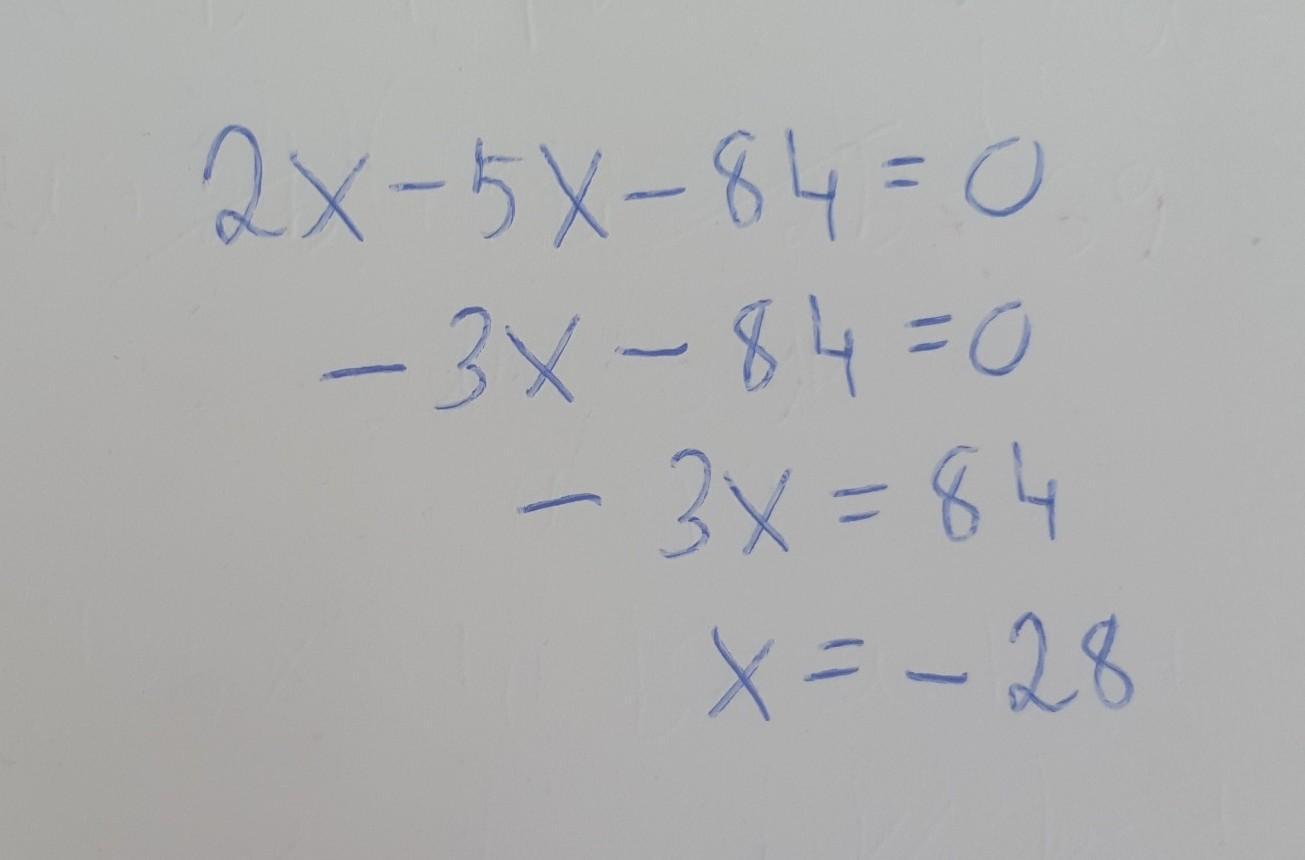 2x-5x-84=0
-3x-84=0
-3x=84
x=-28